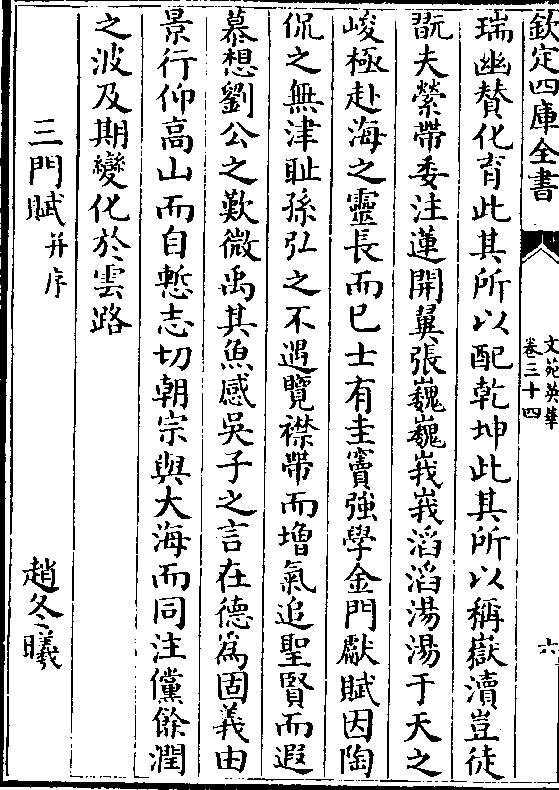 欽定四庫全書
文苑英華
卷三十四
六
瑞幽賛化育此其所以配乾坤此其所以稱嶽瀆豈徒
翫夫縈帶委注蓮開翼張巍巍峩峩滔滔湯湯于天之
峻極赴海之靈長而已士有圭竇強學金門獻賦因陶
侃之無津耻孫弘之不遇覽襟帶而增氣追聖賢而遐
慕想劉公之歎微禹其魚感吳子之言在德為固義由
景行仰高山而自慙志切朝宗與大海而同注儻餘潤
之波及期變化於雲路
三門賦并序
趙冬曦